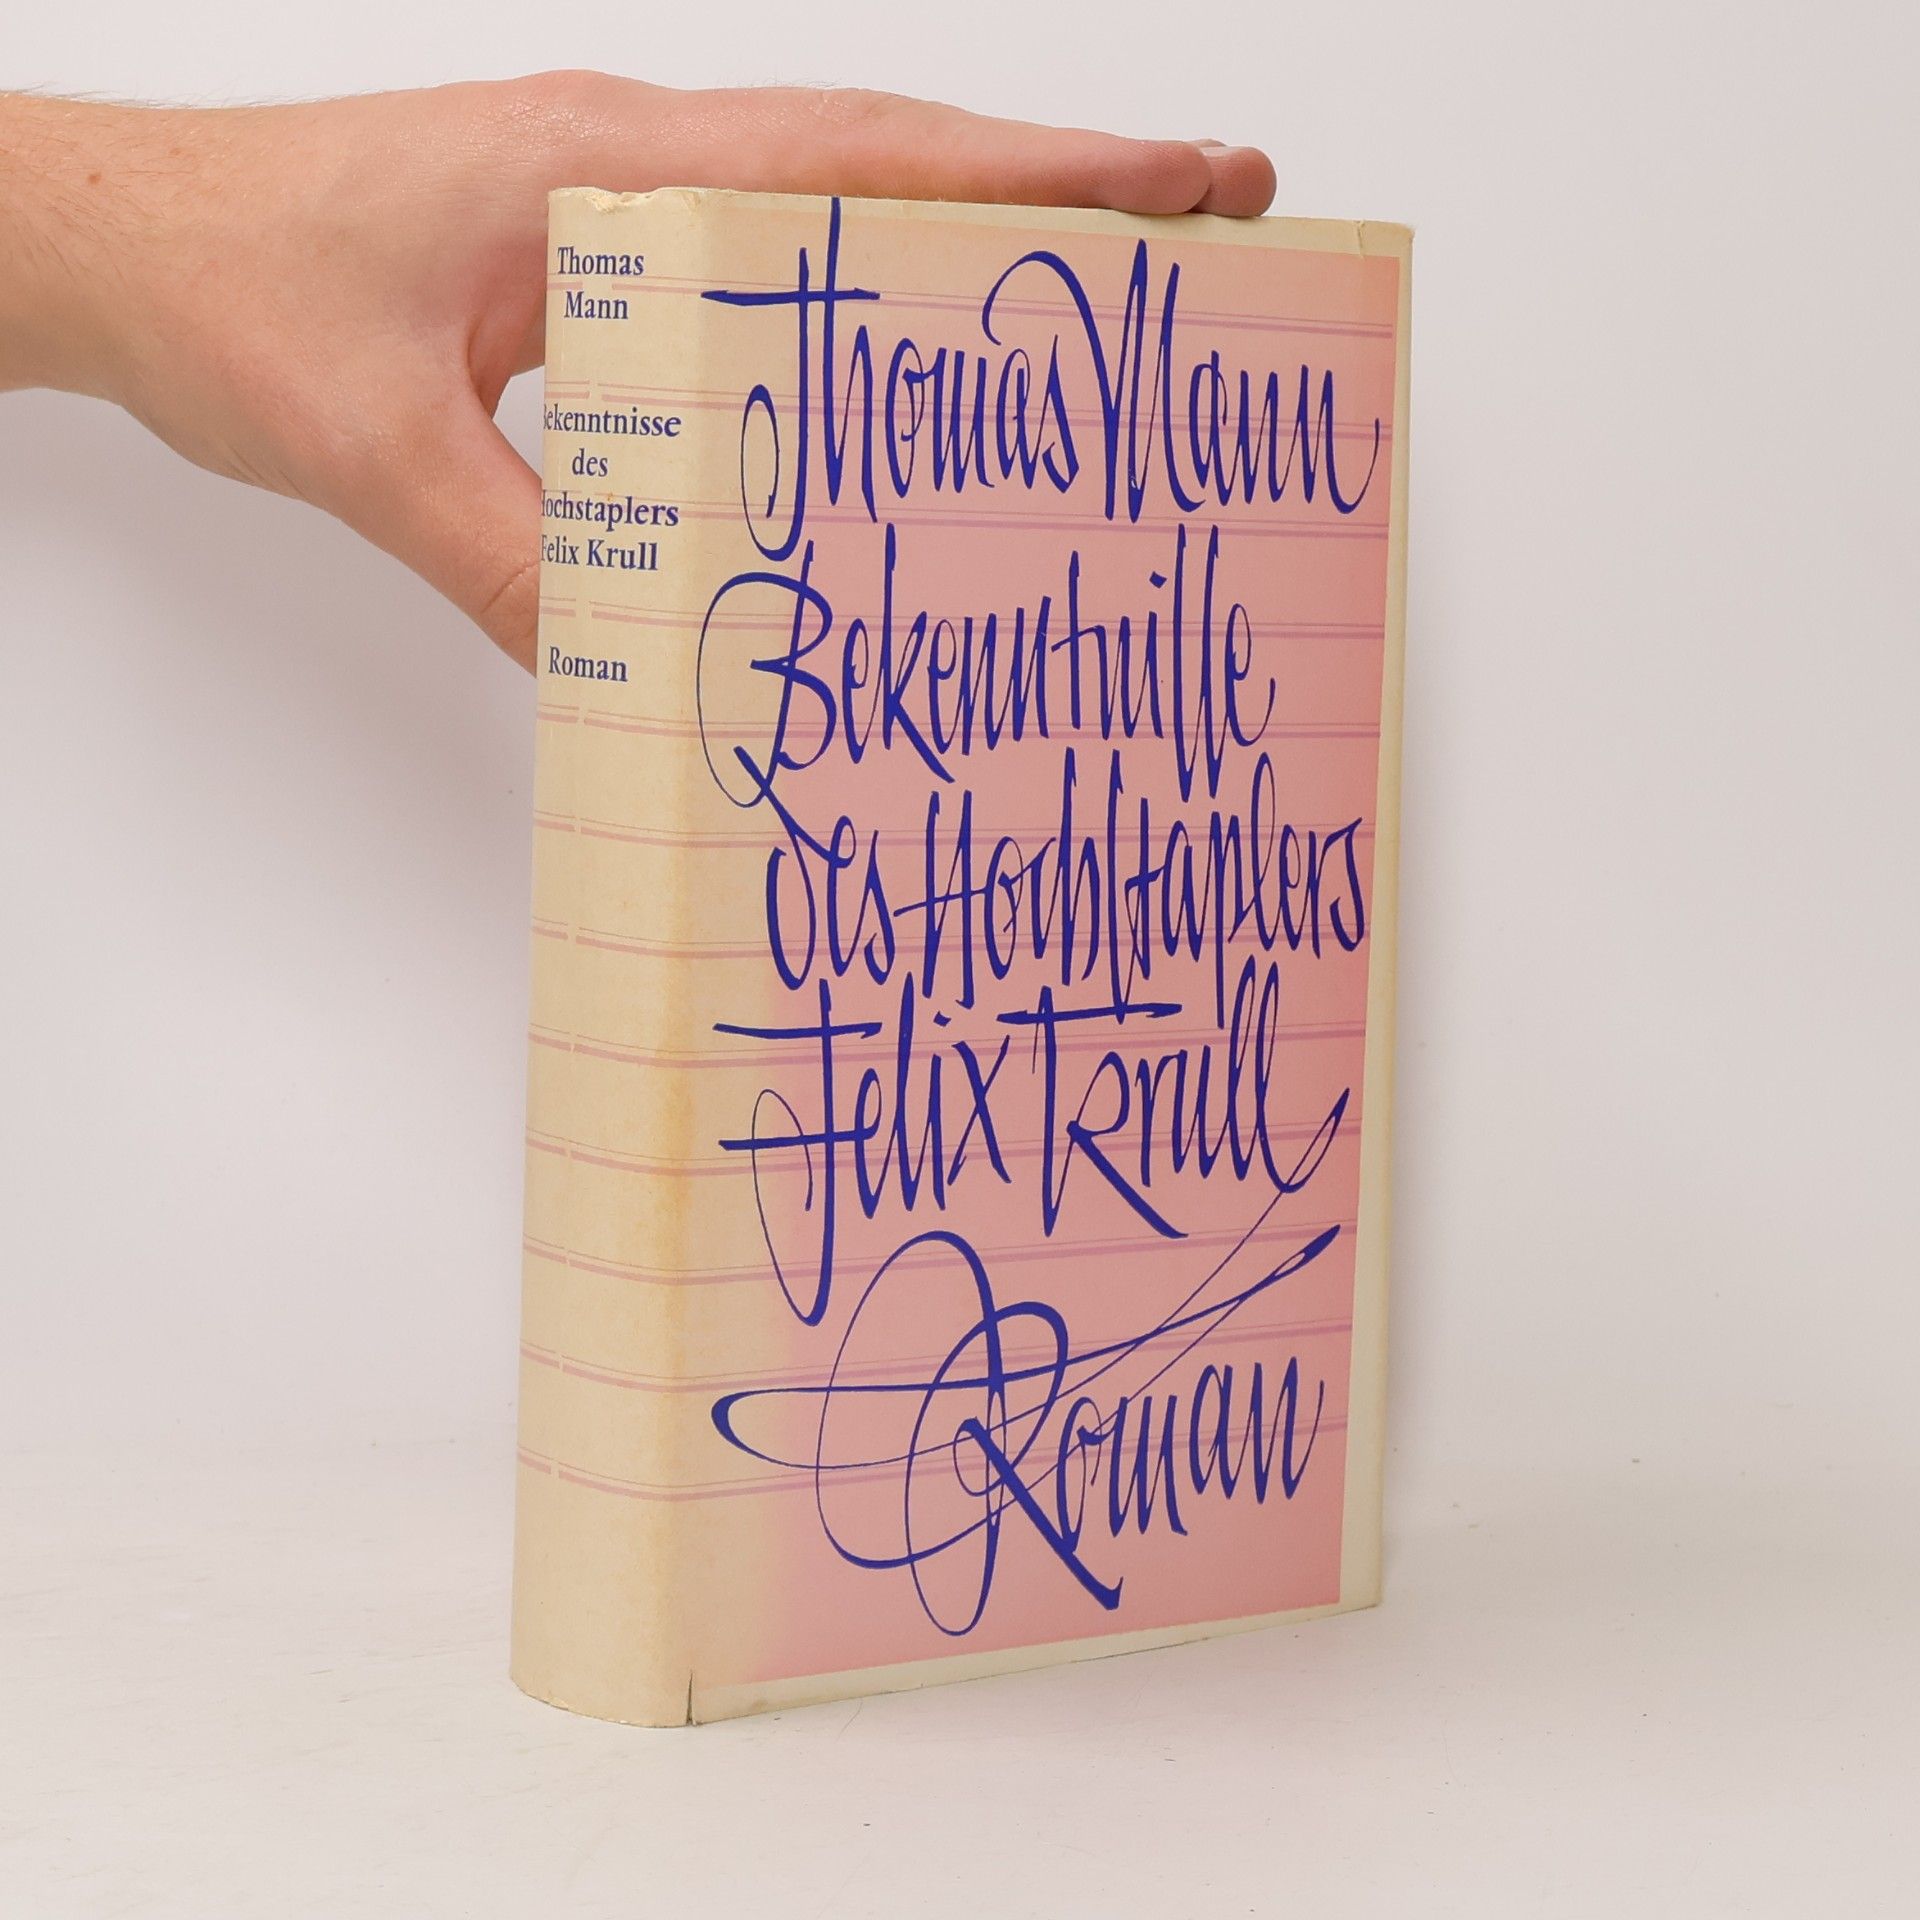 Thomas
Mann
Bekenntnisse
des
Hochstaplers
Felix Krull
Roman
Thomas Mann
Bekenntniſſe
des Hochſtaplers
Felix Krull
Roman